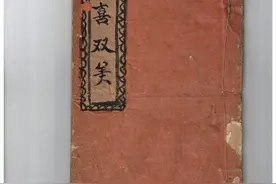 喜双美